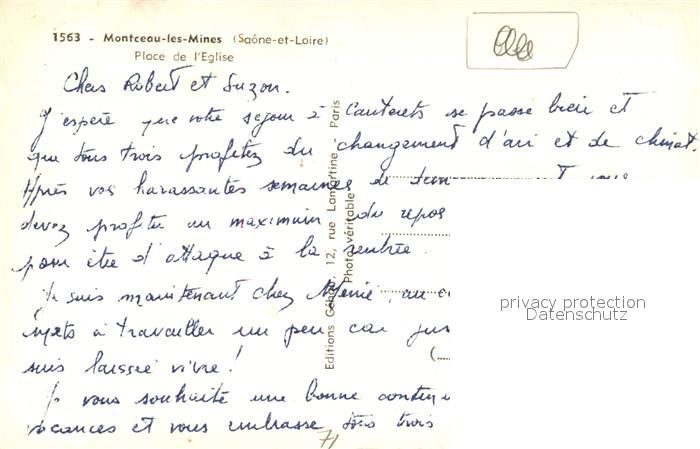 1563 - Montceau-les-Mines (Saône-et-Loire)
Place de l'Eglise
Chers Robert et Suzon.
J'espère que votre sejour à Cauterets se passe bien et
que tous trois profitez du changement d'air et de climat.
Après vos harassantes semaines de
devez profiter un maximum du repos
pour être d'attaque à la rentrée.
Je suis maintenant chez
à travailler un peu car
suis laissée vivre!
Je vous souhaite une bonne
vacances et vous embrasse tous trois
71
Editions 12, rue Lamartine Paris
Photo véritable
privacy protection
Datenschutz